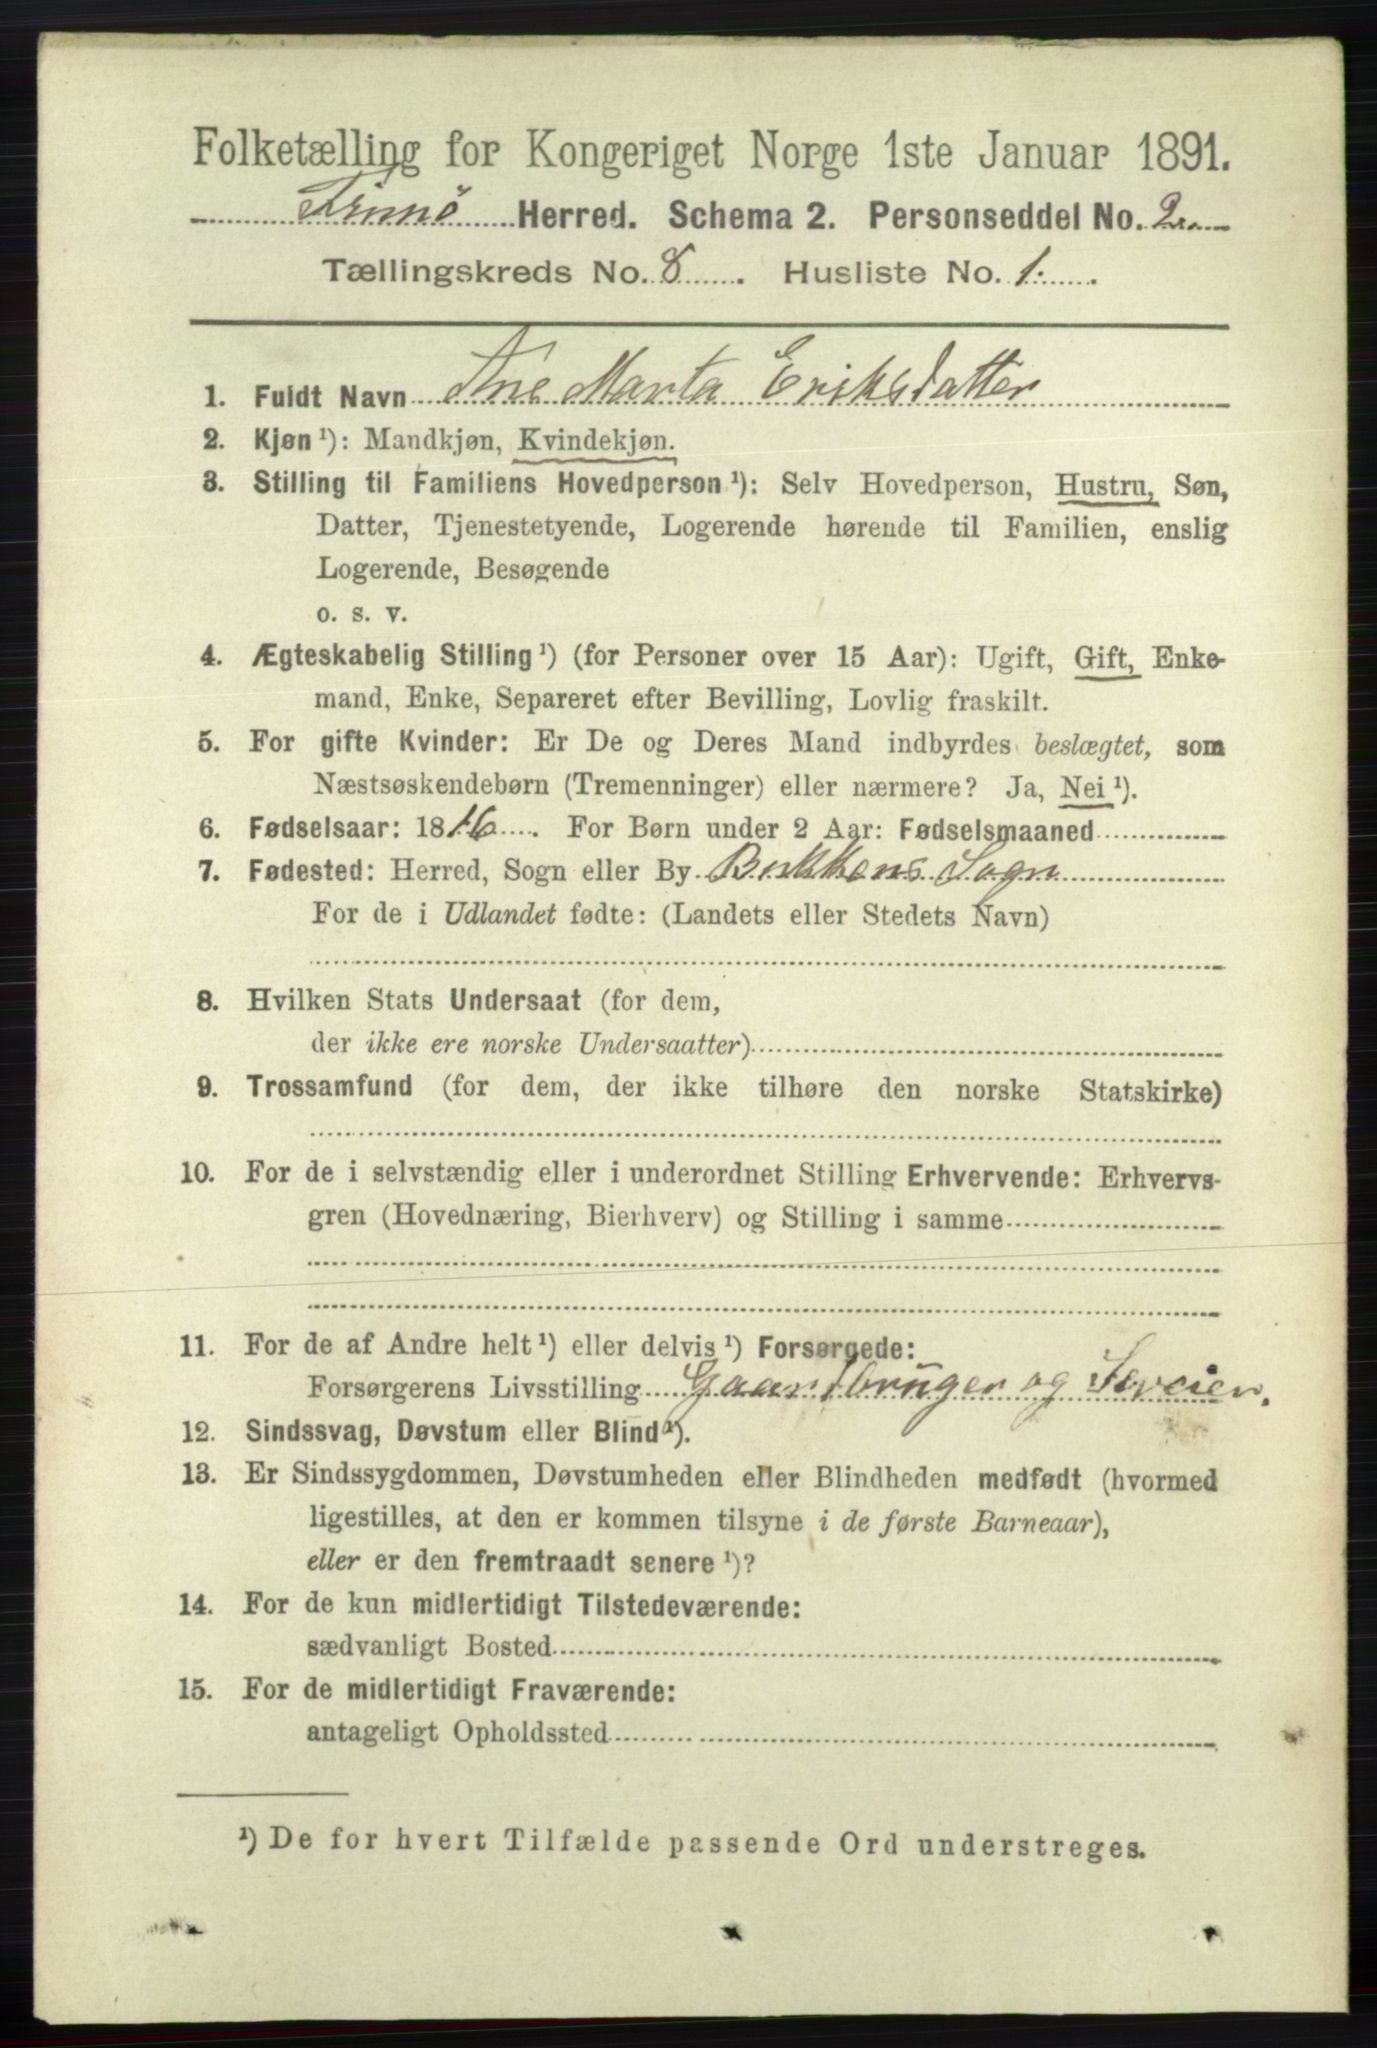 Folketælling for Kongeriget Norge 1ste Januar 1891.
Finnö Herred. Schema 2. Personseddel No. 2
Tællingskreds No. 8. Husliste No. 1.
1. Fuldt Navn Ane Marta Eriksdatter
2. Kjøn ¹): Mandkjøn, Kvindekjøn.
3. Stilling til Familiens Hovedperson ¹): Selv Hovedperson, Hustru, Søn,
Datter, Tjenestetyende, Logerende hørende til Familien, enslig
Logerende, Besøgende
o. s. v.
4. Ægteskabelig Stilling ¹) (for Personer over 15 Aar): Ugift, Gift, Enke-
mand, Enke, Separeret efter Bevilling, Lovlig fraskilt.
5. For gifte Kvinder: Er De og Deres Mand indbyrdes beslægtet, som
Næstsøskendebørn (Tremenninger) eller nærmere? Ja, Nei ¹).
6. Fødselsaar: 1816. For Børn under 2 Aar: Fødselsmaaned
7. Fødested: Herred, Sogn eller By Bukkens Sogn
For de i Udlandet fødte: (Landets eller Stedets Navn)
8. Hvilken Stats Undersaat (for dem,
der ikke ere norske Undersaatter)
9. Trossamfund (for dem, der ikke tilhøre den norske Statskirke)
10. For de i selvstændig eller i underordnet Stilling Erhvervende: Erhvervs-
gren (Hovednæring, Bierhverv) og Stilling i samme
11. For de af Andre helt ¹) eller delvis ¹) Forsørgede:
Forsørgerens Livsstilling Gaardbruger og Selveier.
12. Sindssvag, Døvstum eller Blind ¹).
13. Er Sindssygdommen, Døvstumheden eller Blindheden medfødt (hvormed
ligestilles, at den er kommen tilsyne i de første Barneaar),
eller er den fremtraadt senere ¹)?
14. For de kun midlertidigt Tilstedeværende:
sædvanligt Bosted
15. For de midlertidigt Fraværende:
antageligt Opholdssted
¹) De for hvert Tilfælde passende Ord understreges.